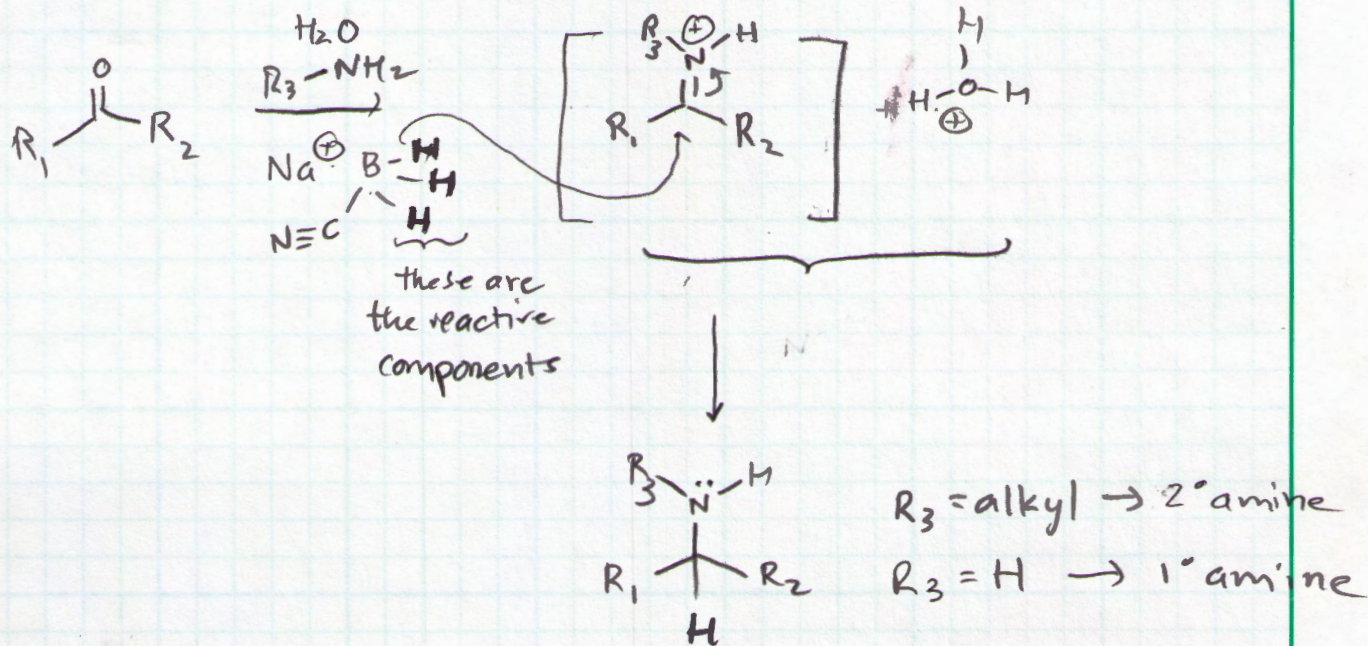 H₂O
R₃—NH₂
O
R₁
R₂
Na⊕ B–H
H
H
N≡C
these are
the reactive
components
R₃ ⊕ H
N
R₁ R₂
H
+ H–O–H
⊕
R₃ N̈ H
R₁ R₂
H
R₃ = alkyl → 2° amine
R₃ = H → 1° amine